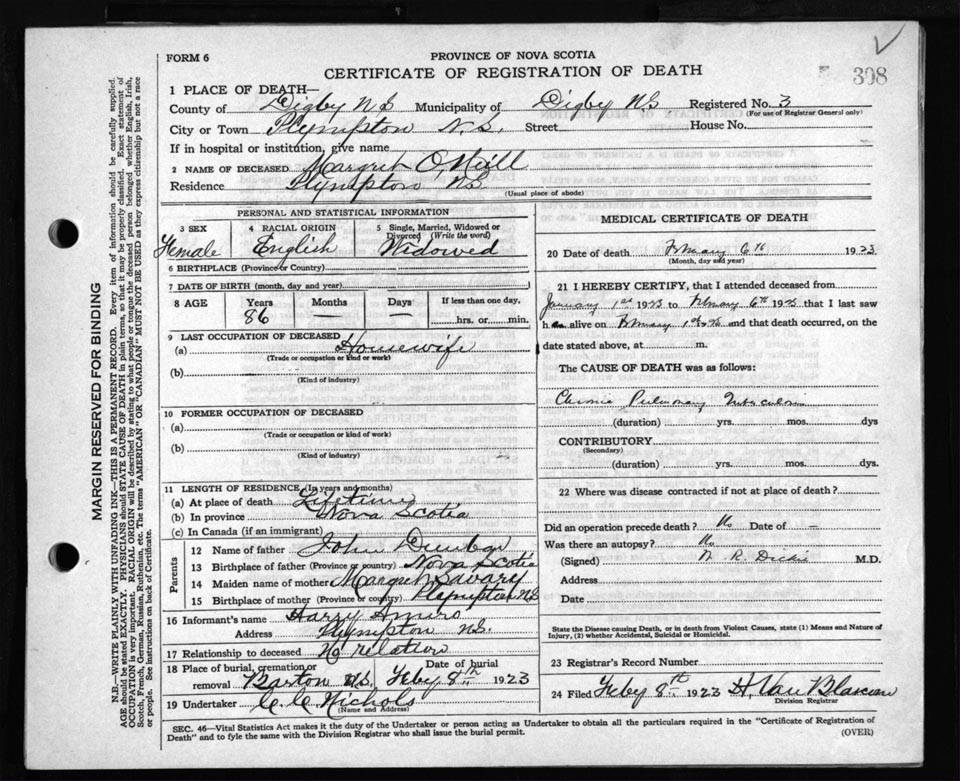 FORM 6
PROVINCE OF NOVA SCOTIA
CERTIFICATE OF REGISTRATION OF DEATH
308
1 PLACE OF DEATH—
County of Digby N S Municipality of Digby NS Registered No. 3
(For use of Registrar General only)
City or Town Plympton N. S. Street House No.
If in hospital or institution, give name
2 NAME OF DECEASED Margret O'Neill
Residence Plympton NS
(Usual place of abode)
PERSONAL AND STATISTICAL INFORMATION
3 SEX Female
4 RACIAL ORIGIN English
5 Single, Married, Widowed or Divorced (Write the word) Widowed
6 BIRTHPLACE (Province or Country)
7 DATE OF BIRTH (month, day and year)
8 AGE Years 86 Months — Days — If less than one day, hrs. or min.
9 LAST OCCUPATION OF DECEASED
(a) Housewife
(Trade or occupation or kind of work)
(b)
(Kind of industry)
10 FORMER OCCUPATION OF DECEASED
(a)
(Trade or occupation or kind of work)
(b)
(Kind of industry)
11 LENGTH OF RESIDENCE (In years and months)
(a) At place of death Lifetime
(b) In province Nova Scotia
(c) In Canada (if an immigrant)
Parents
12 Name of father John Dunbar
13 Birthplace of father (Province or country) Nova Scotia
14 Maiden name of mother Margret Savary
15 Birthplace of mother (Province or country) Plympton NS
16 Informant's name Harry
Address Plympton NS.
17 Relationship to deceased No relation
18 Place of burial, cremation or removal Barton N.S. Date of burial Feby 8th 1923
19 Undertaker C C Nichols
(Name and Address)
MEDICAL CERTIFICATE OF DEATH
20 Date of death February 6th 1923
(Month, day and year)
21 I HEREBY CERTIFY, that I attended deceased from
January 1st 1923 to February 6th 1923 that I last saw
h alive on February 1st and that death occurred, on
date stated above, at m.
The CAUSE OF DEATH was as follows:
Chronic Pulmonary Tuberculosis
(duration) yrs. mos. dys
CONTRIBUTORY
(Secondary)
(duration) yrs. mos. dys.
22 Where was disease contracted if not at place of death?
Did an operation precede death? No Date of —
Was there an autopsy? No
(Signed) N. R. Dickie M.D.
Address
Date
State the Disease causing Death, or in death from Violent Causes, state (1) Means and Nature of
Injury, (2) whether Accidental, Suicidal or Homicidal.
23 Registrar's Record Number
24 Filed Feby 8th 1923 H. Van Blarcom
Division Registrar
SEC. 46—Vital Statistics Act makes it the duty of the Undertaker or person acting as Undertaker to obtain all the particulars required in the "Certificate of Registration of
Death" and to fyle the same with the Division Registrar who shall issue the burial permit. (OVER)
MARGIN RESERVED FOR BINDING
N.B.—WRITE PLAINLY WITH UNFADING INK—THIS IS A PERMANENT RECORD. Every item of information should be carefully supplied.
AGE should be stated EXACTLY. PHYSICIANS should STATE CAUSE OF DEATH in plain terms, so that it may be properly classified. Exact statement of
OCCUPATION is very important. RACIAL ORIGIN will be described by stating to what people or tongue the deceased person belonged whether English, Irish,
Scotch, French, German, Russian, Ruthenian, etc. The terms "AMERICAN" OR "CANADIAN" MUST NOT BE USED as they express citizenship but not a race
or people. See instructions on back of Certificate.